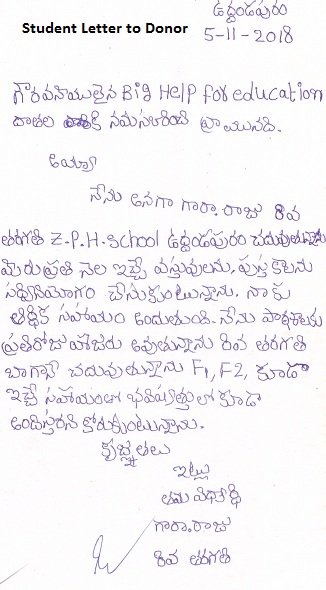 ఉద్దండపురం
Student Letter to Donor
5-11-2018
గౌరవనీయులైన Big Help for education
దాతల కి నమస్కరించి వ్రాయునది.
అయ్యా
నేను అనగా గారా.రాజు 8వ
తరగతి Z.P.H.School ఉద్దండపురం చదువుతున్నాను
మీరు ప్రతి నెల ఇచ్చే వస్తువులను, పుస్తకాలను
సద్వినియోగం చేసుకుంటున్నాను. నాకు
ఆర్థిక సహాయం అందుతుంది. నేను పాఠశాలకు
ప్రతిరోజు హాజరు అవుతున్నాను 8వ తరగతి
బాగానే చదువుతున్నాను F1, F2, కూడా
ఇచ్చే సహాయంలో భవిష్యత్తులో కూడా
అందిస్తారని కోరుకుంటున్నాను.
కృజ్ఞతలు
ఇట్లు
తమ విద్యార్థి
గారా.రాజు
8వ తరగతి